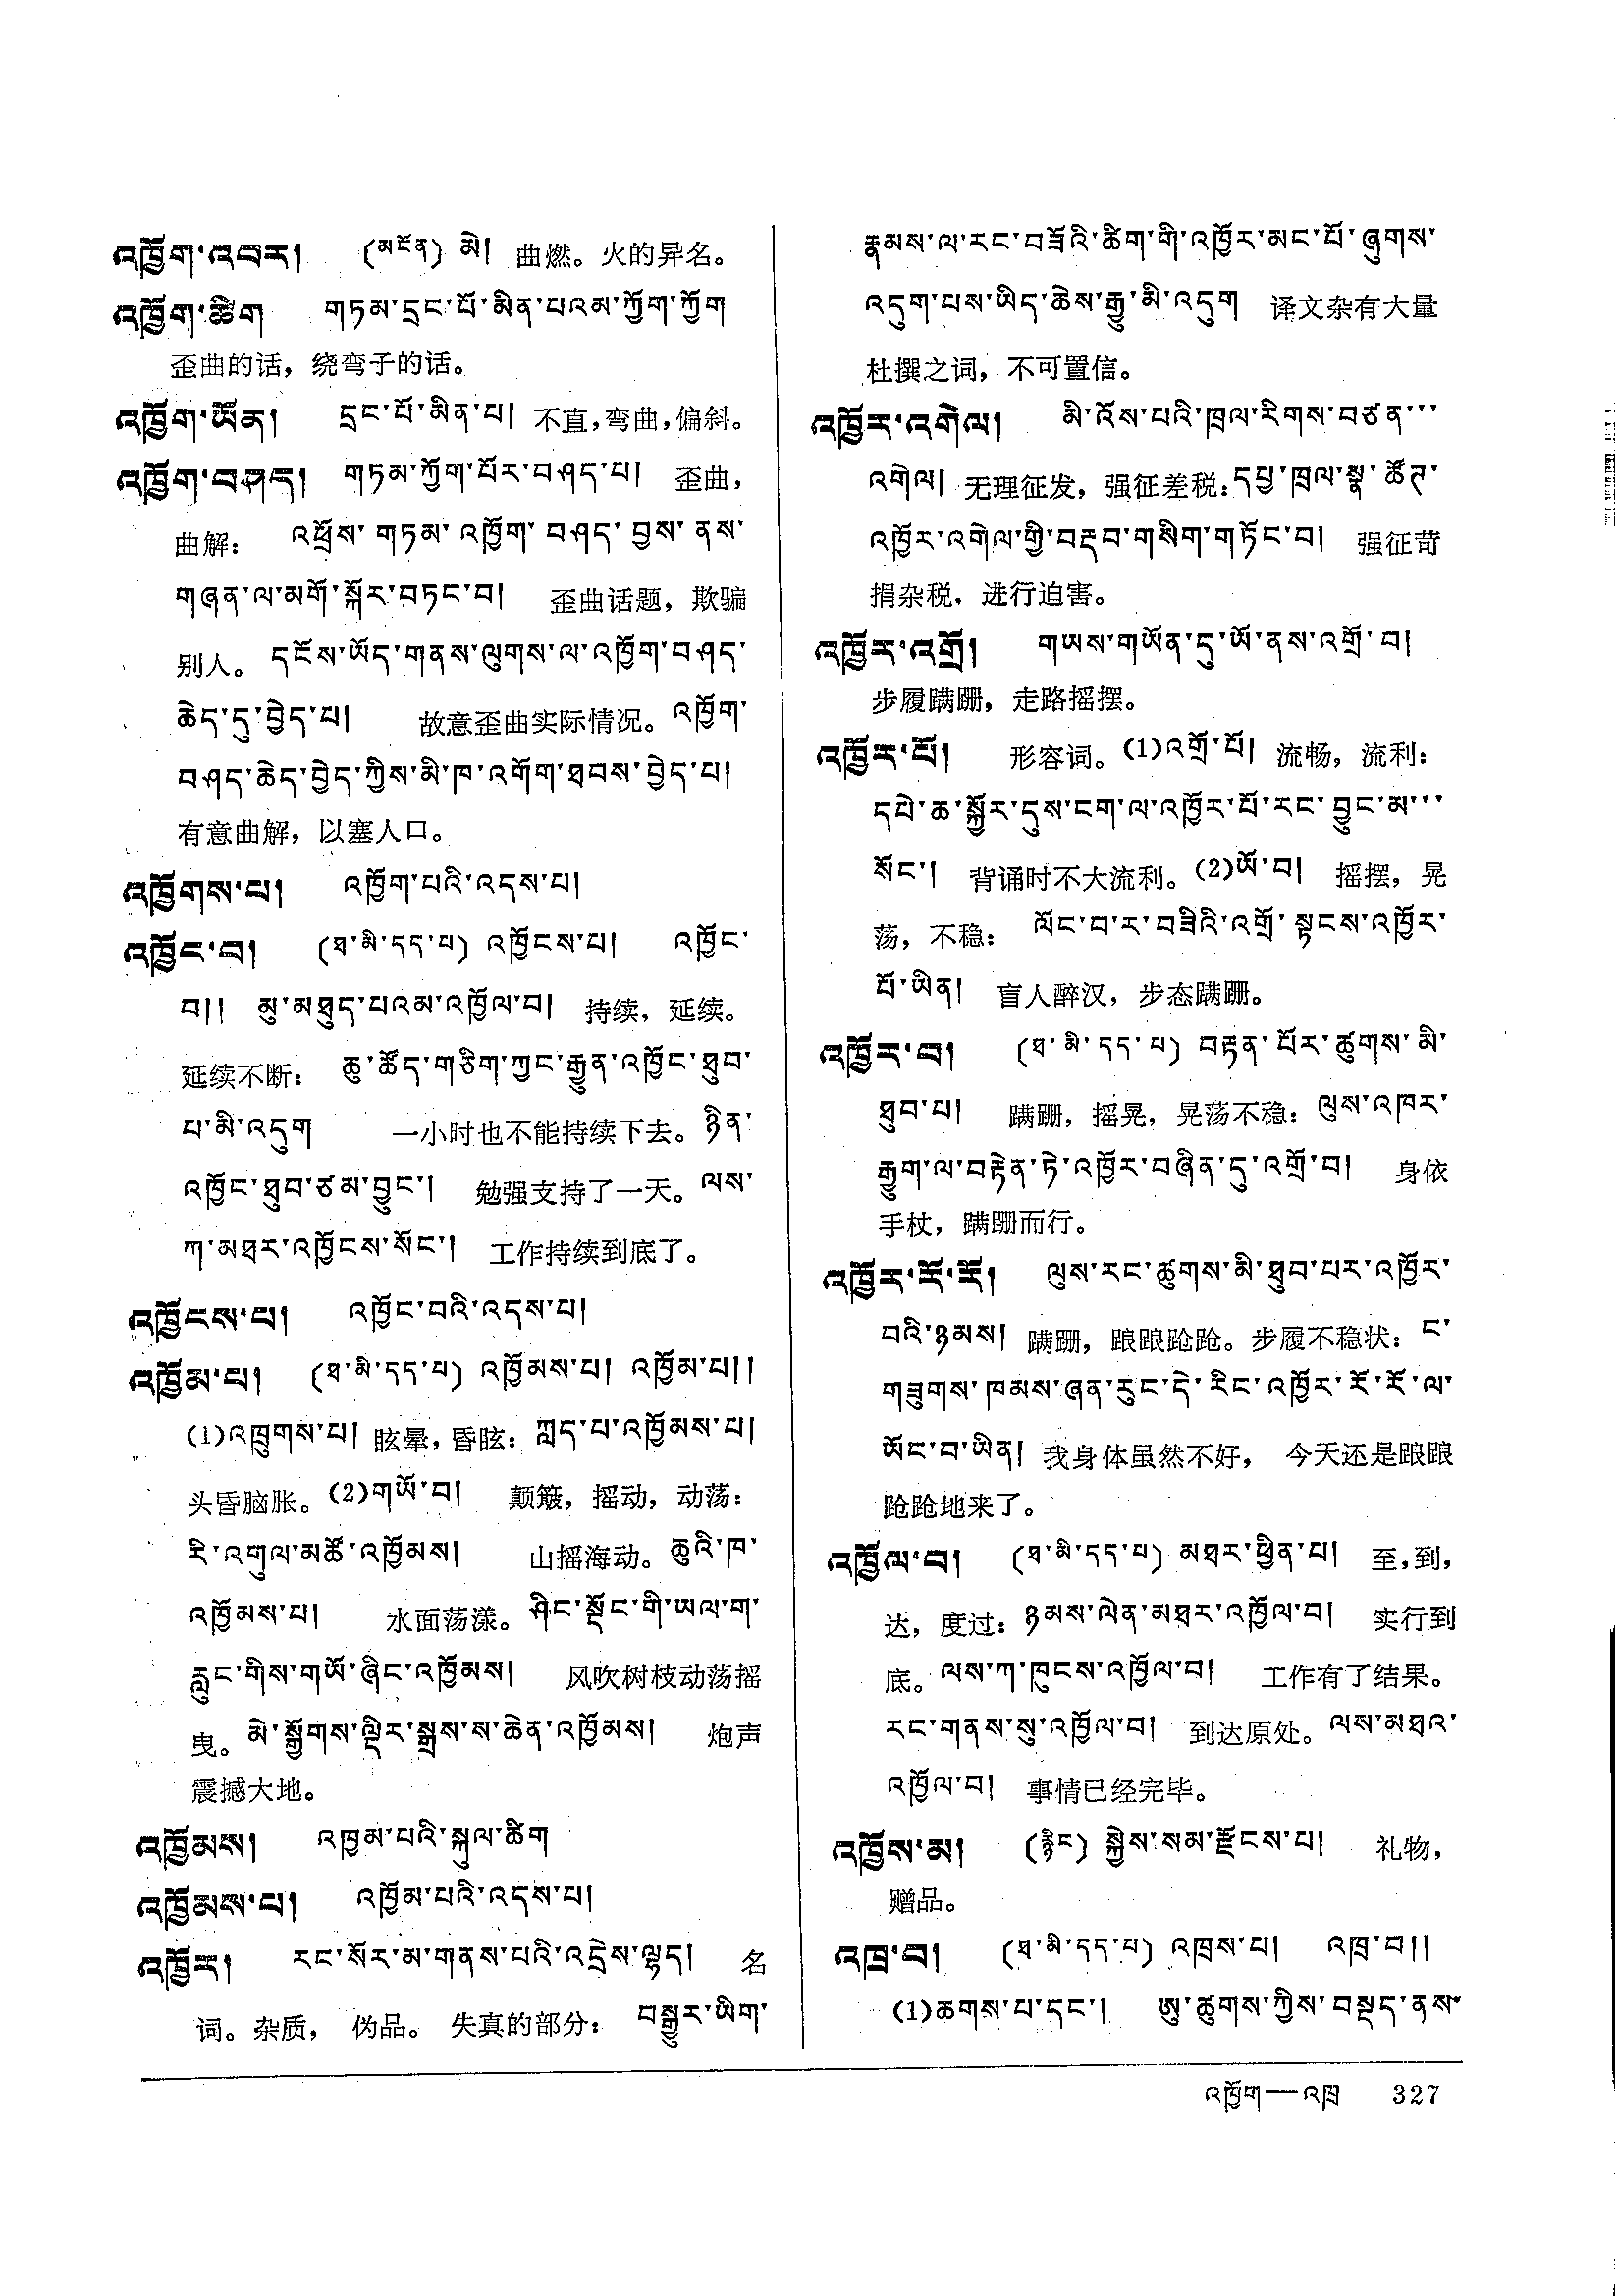 འཁྱོག་འབར། (མངོན) མེ། 曲燃。火的异名。
འཁྱོག་ཚིག གཏམ་དྲང་པོ་མིན་པའམ་ཀྱོག་ཀྱོག
歪曲的话，绕弯子的话。
འཁྱོག་ཡོན། དྲང་པོ་མིན་པ། 不直，弯曲，偏斜。
འཁྱོག་བཤད། གཏམ་ཀྱོག་པོར་བཤད་པ། 歪曲，
曲解： འཕྲོས་གཏམ་འཁྱོག་བཤད་བྱས་ནས་
གཞན་ལ་མགོ་སྐོར་བཏང་བ། 歪曲话题，欺骗
别人。དངོས་ཡོད་གནས་ལུགས་ལ་འཁྱོག་བཤད་
ཆེད་དུ་བྱེད་པ། 故意歪曲实际情况。འཁྱོག་
བཤད་ཆེད་བྱེད་ཀྱིས་མི་ཁ་འགོག་ཐབས་བྱེད་པ།
有意曲解，以塞人口。
འཁྱོགས་པ། འཁྱོག་པའི་འདས་པ།
འཁྱོང་བ། (ཐ་མི་དད་པ) འཁྱོངས་པ། འཁྱོང་
བ།། མུ་མཐུད་པའམ་འཁྱོལ་བ། 持续，延续。
延续不断： ཆུ་ཚོད་གཅིག་ཀྱང་རྒྱུན་འཁྱོང་ཐུབ་
པ་མི་འདུག 一小时也不能持续下去。ཉིན་
འཁྱོང་ཐུབ་ཙམ་བྱུང་། 勉强支持了一天。ལས་
ཀ་མཐར་འཁྱོངས་སོང་། 工作持续到底了。
འཁྱོངས་པ། འཁྱོང་བའི་འདས་པ།
འཁྱོམ་པ། (ཐ་མི་དད་པ) འཁྱོམས་པ། འཁྱོམ་པ།།
(1)འཁྲུགས་པ། 眩晕，昏眩： ཀླད་པ་འཁྱོམས་པ།
头昏脑胀。(2)གཡོ་བ། 颠簸，摇动，动荡：
རི་འགུལ་མཚོ་འཁྱོམས། 山摇海动。ཆུའི་ཁ་
འཁྱོམས་པ། 水面荡漾。ཤིང་སྡོང་གི་ཡལ་ག་
རླུང་གིས་གཡོ་ཞིང་འཁྱོམས། 风吹树枝动荡摇
曳。མེ་སྒྱོགས་ལྡིར་སྒྲས་ས་ཆེན་འཁྱོམས། 炮声
震撼大地。
འཁྱོམས། འཁྱམ་པའི་སྐུལ་ཚིག
འཁྱོམས་པ། འཁྱོམ་པའི་འདས་པ།
འཁྱོར། རང་སོར་མ་གནས་པའི་འདྲེས་ལྷད། 名
词。杂质，伪品。失真的部分： བསྒྱུར་ཡིག་
རྣམས་ལ་རང་བཟོའི་ཚིག་གི་འཁྱོར་མང་པོ་ཞུགས་
འདུག་པས་ཡིད་ཆེས་རྒྱུ་མི་འདུག 译文杂有大量
杜撰之词，不可置信。
འཁྱོར་འགེལ། མི་འོས་པའི་ཁྲལ་རིགས་བཙན་་་
འགེལ། 无理征发，强征差税：དཔྱ་ཁྲལ་སྣ་ཚོཊ་
འཁྱོར་འགེལ་གྱི་བརྡབ་གསིག་གཏོང་བ། 强征苛
捐杂税，进行迫害。
འཁྱོར་འགྲོ། གཡས་གཡོན་དུ་ཡོ་ནས་འགྲོ་བ།
步履蹒跚，走路摇摆。
འཁྱོར་པོ། 形容词。(1)འགྲོ་པོ། 流畅，流利：
དཔེ་ཆ་སྐྱོར་དུས་ངག་ལ་འཁྱོར་པོ་རང་བྱུང་མ་་་
སོང་། 背诵时不大流利。(2)ཡོ་བ། 摇摆，晃
荡，不稳： ལོང་བ་ར་བཟིའི་འགྲོ་སྟངས་འཁྱོར་
པོ་ཡིན། 盲人醉汉，步态蹒跚。
འཁྱོར་བ། (ཐ་མི་དད་པ) བརྟན་པོར་ཚུགས་མི་
ཐུབ་པ། 蹒跚，摇晃，晃荡不稳：ལུས་འཁར་
རྒྱུག་ལ་བརྟེན་ཏེ་འཁྱོར་བཞིན་དུ་འགྲོ་བ། 身依
手杖，蹒跚而行。
འཁྱོར་རོ་རོ། ལུས་རང་ཚུགས་མི་ཐུབ་པར་འཁྱོར་
བའི་ཉམས། 蹒跚，踉踉跄跄。步履不稳状：ང་
གཟུགས་ཁམས་ཞན་རུང་དེ་རིང་འཁྱོར་རོ་རོ་ལ་
ཡོང་བ་ཡིན། 我身体虽然不好，今天还是踉踉
跄跄地来了。
འཁྱོལ་བ། (ཐ་མི་དད་པ) མཐར་ཕྱིན་པ། 至，到，
达，度过：ཉམས་ལེན་མཐར་འཁྱོལ་བ། 实行到
底。ལས་ཀ་ཁུངས་འཁྱོལ་བ། 工作有了结果。
རང་གནས་སུ་འཁྱོལ་བ། 到达原处。ལས་མཐའ་
འཁྱོལ་བ། 事情已经完毕。
འཁྱོས་མ། (རྙིང) སྐྱེས་སམ་རྫོངས་པ། 礼物，
赠品。
འཁྲ་བ། (ཐ་མི་དད་པ) འཁྲས་པ། འཁྲ་བ།།
(1)ཆགས་པ་དང་། ཨུ་ཚུགས་ཀྱིས་བསྡད་ནས་
འཁྱོག—འཁྲ 327